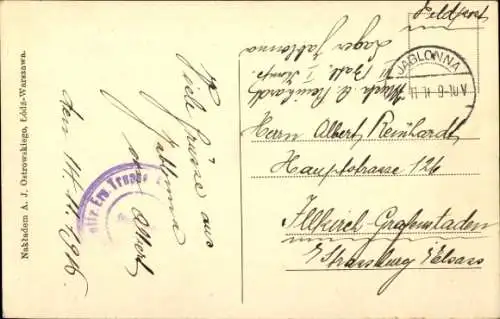 Feldpost
JABLONNA
11.11. 9-10 V
Musk. E. Reinhardt
II Batl. 1 Komp.
Lager Jablonna
Herrn Albert Reinhardt
Hauptstrasse 126
Illkirch-Grafenstaden
b/Strassburg i/Elsass
Viele Grüsse aus
Jablonna
den 11.11.1916.
Nakładem A. J. Ostrowskiego, Łódź-Warszawa.